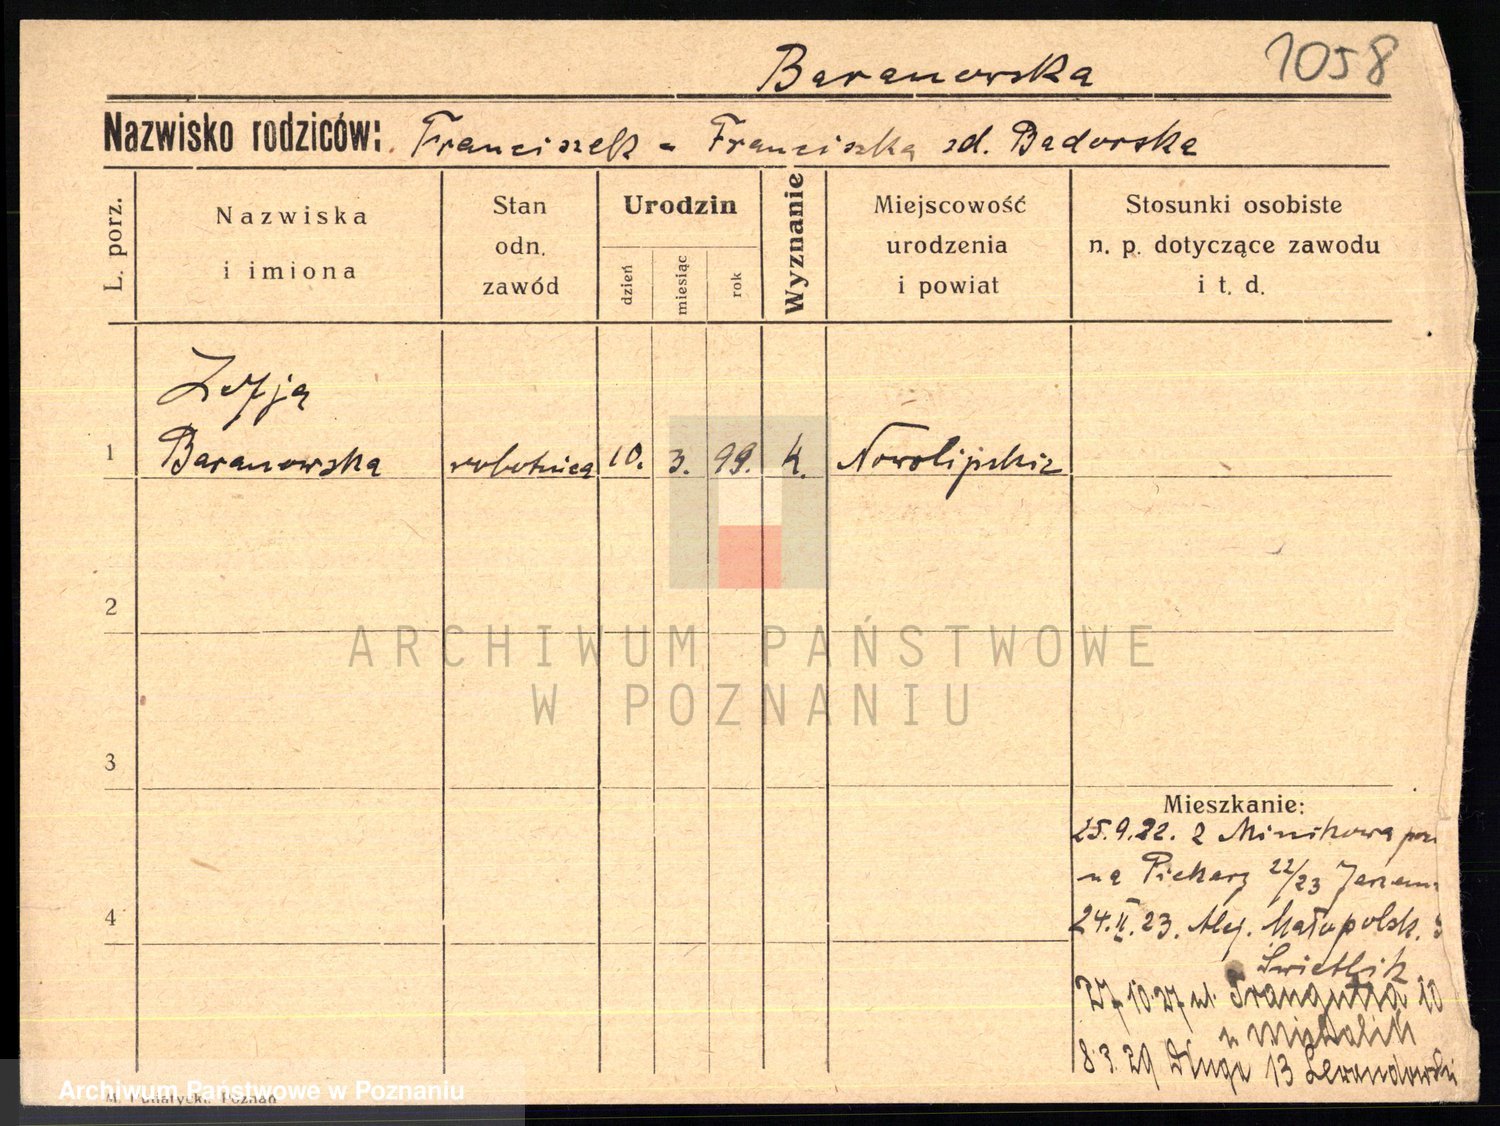 Baranowska 1058
Nazwisko rodziców: Franciszek - Franciszka zd. Badorska
L. porz.
Nazwiska
i imiona
Stan
odn.
zawód
Urodzin
dzień
miesiąc
rok
Wyznanie
Miejscowość
urodzenia
i powiat
Stosunki osobiste
n. p. dotyczące zawodu
i t. d.
Zofja
1 Baranowska robotnica 10. 3. 99. k. Nowolipskie
2
ARCHIWUM PAŃSTWOWE
W POZNANIU
3
Mieszkanie:
25.9.22. z Minikowa
na Piekary 22/23
4
24.II.23. Alej. Małopolsk.
Świetlik
27 10.27 ul. 10
8.3.29 Długa 13 Lewandowski
Archiwum Państwowe w Poznaniu
Poznań